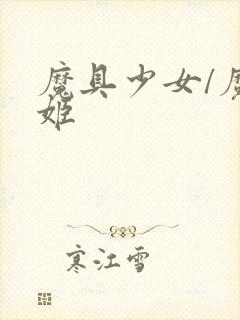 魔具少女/魔
姬
寒江雪